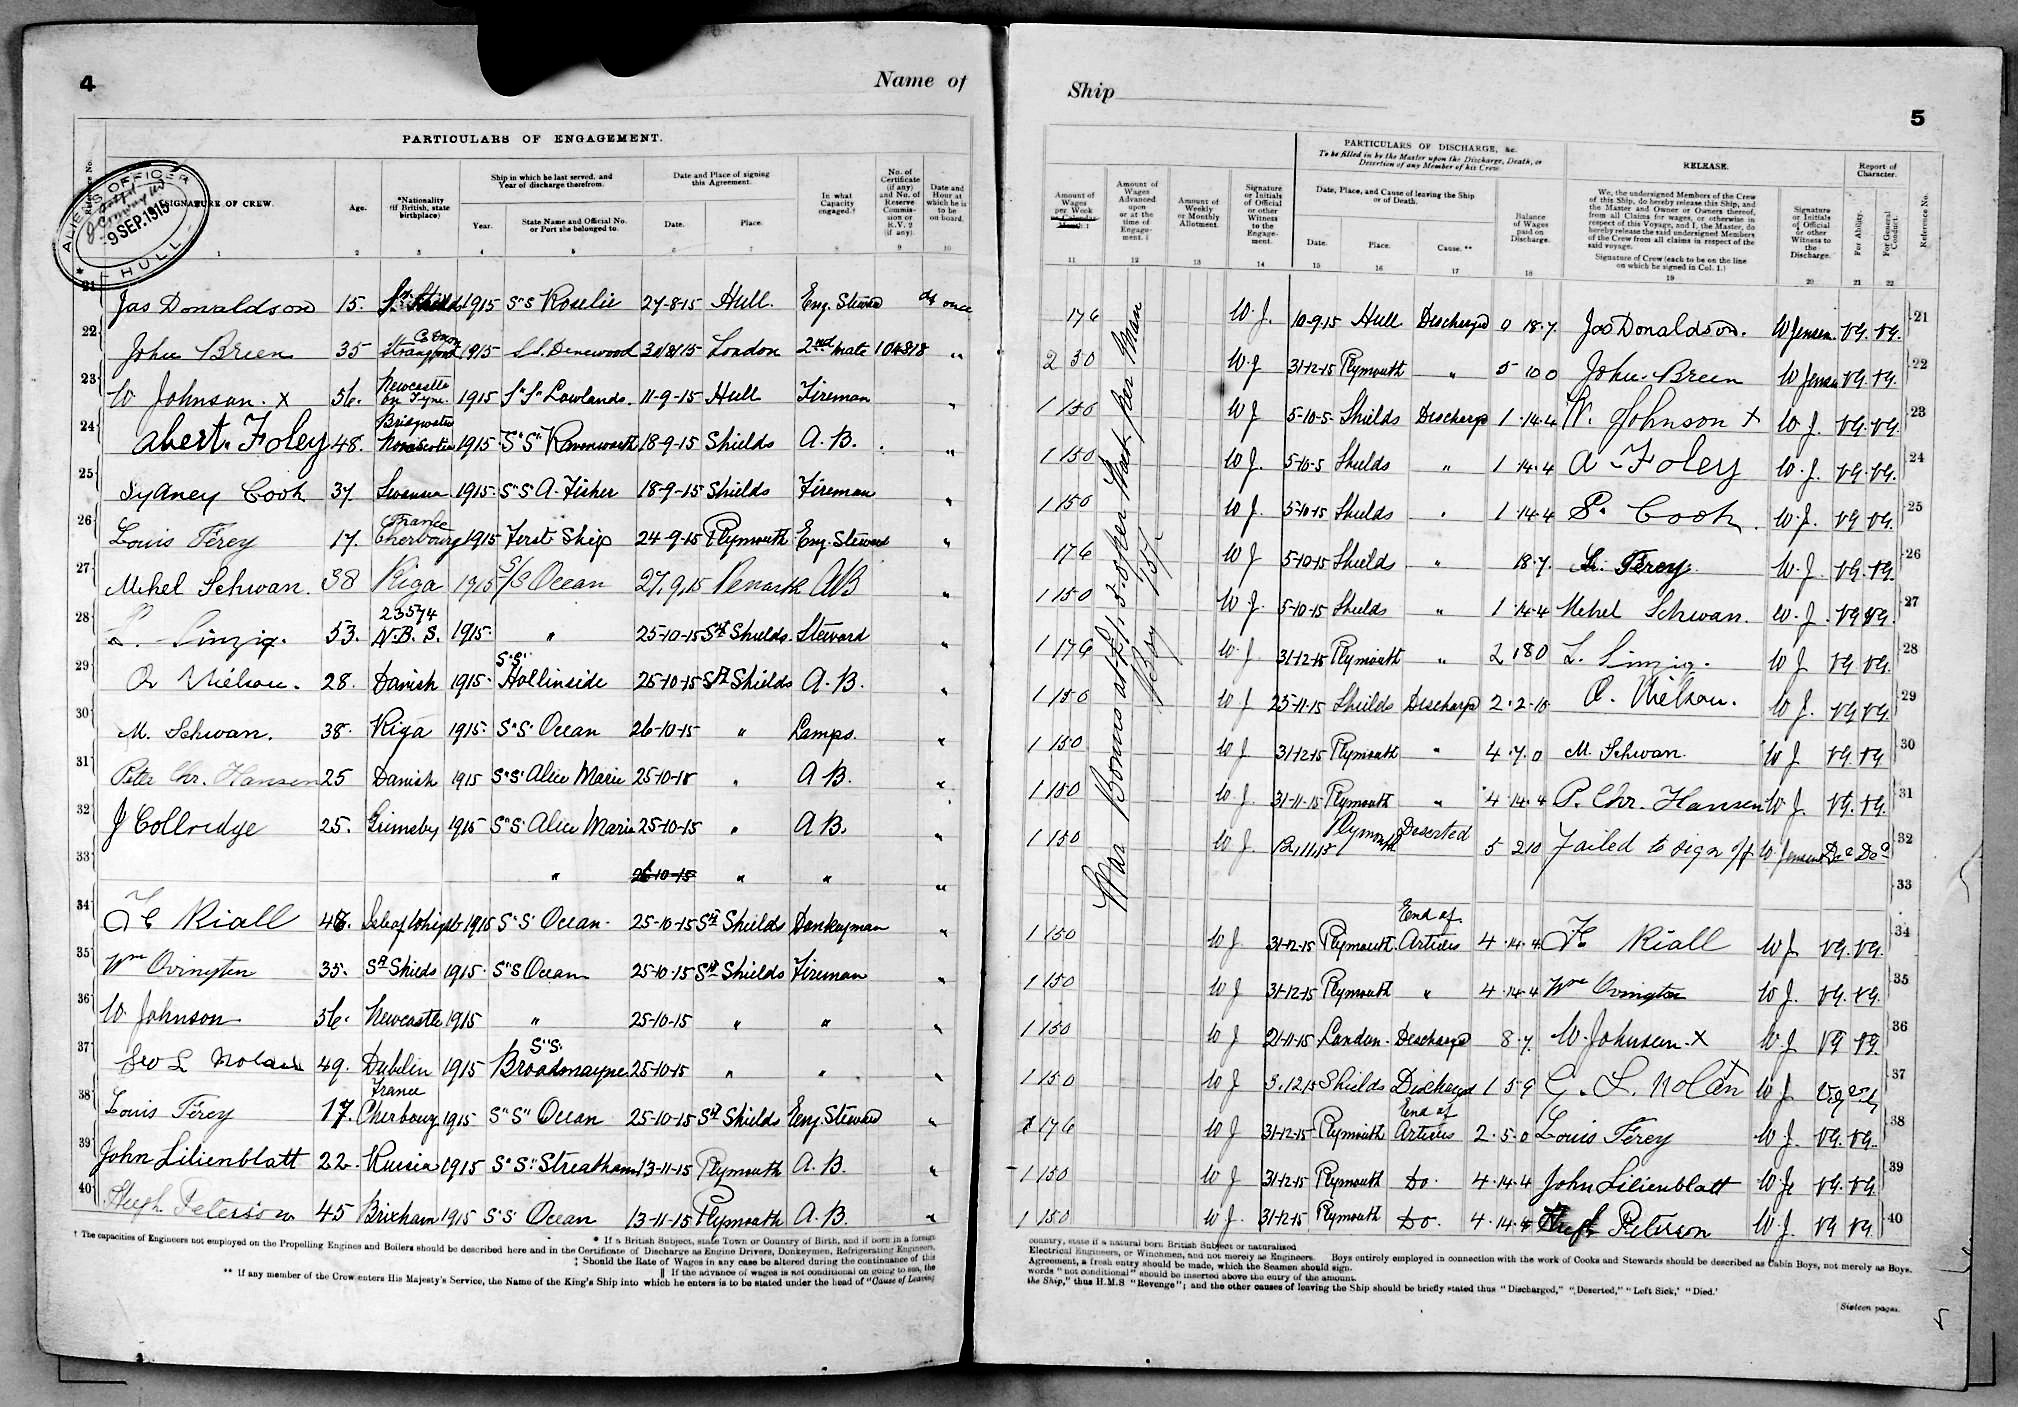 4
Name of
PARTICULARS OF ENGAGEMENT.
ALIENS OFFICER
9 SEP. 1915
HULL
Reference No.
SIGNATURE OF CREW.
Age.
*Nationality (if British, state birthplace)
Ship in which he last served, and Year of discharge therefrom.
Year.
State Name and Official No. or Port she belonged to.
Date and Place of signing this Agreement.
Date.
Place.
In what Capacity engaged.†
No. of Certificate (if any) and No. of Reserve Commission or R.V. 2 (if any).
Date and Hour at which he is to be on board.
1 2 3 4 5 6 7 8 9 10
21 Jas Donaldson 15. 1915 S"S Roselie 27-8-15 Hull. Eng. Steward at once
22 John Breen 35 Co Down Strangford 1915 S.S. Denewood 30/8/15 London 2nd Mate 104818 "
23 W Johnson. X 36. Newcastle on Tyne. 1915 S"S" Lowlands. 11-9-15 Hull Fireman "
24 Abert. Foley 48. Bridgwater Novascotia 1915 S"S" Ravensworth 18-9-15 Shields A.B. "
25 Sydney Cook 37 Swansea 1915 S"S" A. Fisher 18-9-15 Shields Fireman "
26 Louis Férey 17. France Cherbourg 1915 First Ship 24-9-15 Plymouth Eng. Steward "
27 Mihel Schwan. 38 Riga 1915 S/S Ocean 27,9,15 Penarth AB "
28 L. Sinzig. 53. 23574 N.B.S. 1915 " 25-10-15 Sth Shields. Steward "
29 O Nielsen. 28. Danish 1915 S"S" Hollinside 25-10-15 Sth Shields A.B. "
30 M. Schwan. 38. Riga 1915 S"S" Ocean 26-10-15 " Lamps. "
31 Peter Chr. Hansen 25 Danish 1915 S"S" Alice Marie 25-10-15 " A B. "
32 J Collridge 25. Grimsby 1915 S"S" Alice Marie 25-10-15 " A B. "
33 " 26-10-15 " " "
34 F C Riall 48. 1915 S"S" Ocean 25-10-15 Sth Shields Donkeyman "
35 Wm Ovington 35. Sth Shields 1915 S"S Ocean 25-10-15 Sth Shields Fireman "
36 W. Johnson 36. Newcastle 1915 " 25-10-15 " " "
37 Geo L Nolan 49. Dublin 1915 S"S" Broadmayne 25-10-15 " " "
38 Louis Férey 17. France Cherbourg 1915 S"S" Ocean 25-10-15 Sth Shields Eng. Steward "
39 John Lilienblatt 22. Russia 1915 S"S" Streatham 13-11-15 Plymouth A.B. "
40 Hugh Peterson 45 Brixham 1915 S.S. Ocean 13-11-15 Plymouth A.B. "
† The capacities of Engineers not employed on the Propelling Engines and Boilers should be described here and in the Certificate of Discharge as Engine Drivers, Donkeymen, Refrigerating Engineers,
* If a British Subject, state Town or Country of Birth, and if born in a foreign
‡ Should the Rate of Wages in any case be altered during the continuance of this
|| If the advance of wages is not conditional on going to sea, the
** If any member of the Crew enters His Majesty's Service, the Name of the King's Ship into which he enters is to be stated under the head of "Cause of Leaving
Ship
5
Amount of Wages per Week or Calendar Month.‡
Amount of Wages Advanced upon or at the time of Engagement. ‖
Amount of Weekly or Monthly Allotment.
Signature or Initials of Official or other Witness to the Engagement.
PARTICULARS OF DISCHARGE, &c.
To be filled in by the Master upon the Discharge, Death, or Desertion of any Member of his Crew.
Date, Place, and Cause of leaving the Ship or of Death.
Date.
Place.
Cause.**
Balance of Wages paid on Discharge.
RELEASE.
We, the undersigned Members of the Crew of this Ship, do hereby release this Ship, and the Master and Owner or Owners thereof, from all Claims for wages, or otherwise in respect of this Voyage, and I, the Master, do hereby release the said undersigned Members of the Crew from all claims in respect of the said voyage.
Signature of Crew (each to be on the line on which he signed in Col. 1.)
Signature or Initials of Official or other Witness to the Discharge.
Report of Character.
For Ability.
For General Conduct.
Reference No.
11 12 13 14 15 16 17 18 19 20 21 22
War Bonus at £1.5.0 per Week per Man
Boy 15/-
17 6 W.J. 10-9-15 Hull Discharged 0 18.7. Jas Donaldson. W Jensen. VG. VG. 21
2 5 0 W.J 31-12-15 Plymouth " 5 10 0 John Breen W Jensen VG. VG. 22
1 15 0 W J 5-10-5 Shields Discharge 1.14.4 W. Johnson X W J. VG. VG. 23
1 15 0 W J. 5-10-5 Shields " 1 14.4 A-Foley W.J. VG. VG. 24
1 15 0 W J. 5-10-15 Shields " 1.14.4 S. Cook. W.J. VG VG. 25
17 6 W J 5-10-15 Shields " 18.7. L. Férey. W.J. VG. VG. 26
1 15 0 W J. 5-10-15 Shields " 1.14.4 Mihel Schwan. W.J. VG VG. 27
1 17 6 W.J 31-12-15 Plymouth " 2 18 0 L. Sinzig. W J VG VG. 28
1 15 0 W J 25-11-15 Shields Discharge 2.2.10 O. Nielsen. W J. VG VG. 29
1 15 0 W J 31-12-15 Plymouth " 4.7.0 M. Schwan W J VG VG 30
1 15 0 W J. 31-11-15 Plymouth " 4.14.4 P. Chr. Hansen W J. VG. VG. 31
1 15 0 W J. 12,11,15 Plymouth Deserted 5 2 10 Failed to sign off W Jensen Dec Dec 32
33
1 15 0 W J 31-12-15 Plymouth End of Articles 4.14.4 F C Riall W J VG. VG. 34
1 15 0 W J 31-12-15 Plymouth " 4.14.4 Wm Ovington W J. VG. VG. 35
1 15 0 W J 21-11-15 London. Discharge 8.7. W. Johnson. X W J VG VG. 36
1 15 0 W J 3.12.15 Shields Discharged 1 5 9 G. L. Nolan W J. V.G V.G 37
17 6 W J 31-12-15 Plymouth End of Articles 2.5.0 Louis Férey W J. VG. VG. 38
1 15 0 W J 31-12-15 Plymouth Do. 4.14.4 John Lilienblatt W J. VG. VG. 39
1 15 0 W J. 31-12-15 Plymouth Do. 4.14.4 Hugh Peterson W J. VG VG. 40
country, state if a natural born British Subject or naturalized
Electrical Engineers, or Winchmen, and not merely as Engineers. Boys entirely employed in connection with the work of Cooks and Stewards should be described as Cabin Boys, not merely as Boys.
Agreement, a fresh entry should be made, which the Seamen should sign.
words "not conditional" should be inserted above the entry of the amount.
the Ship," thus H.M.S "Revenge"; and the other causes of leaving the Ship should be briefly stated thus "Discharged," "Deserted," "Left Sick," "Died."
[Sixteen pages.